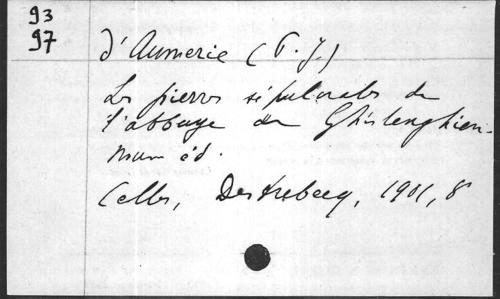 93
97
d'Aumerie (P. J.)
Les pierres sépulcrales de
l'abbaye de Ghislenghien.
éd.
Celles, Destrebecq, 1901, 8°